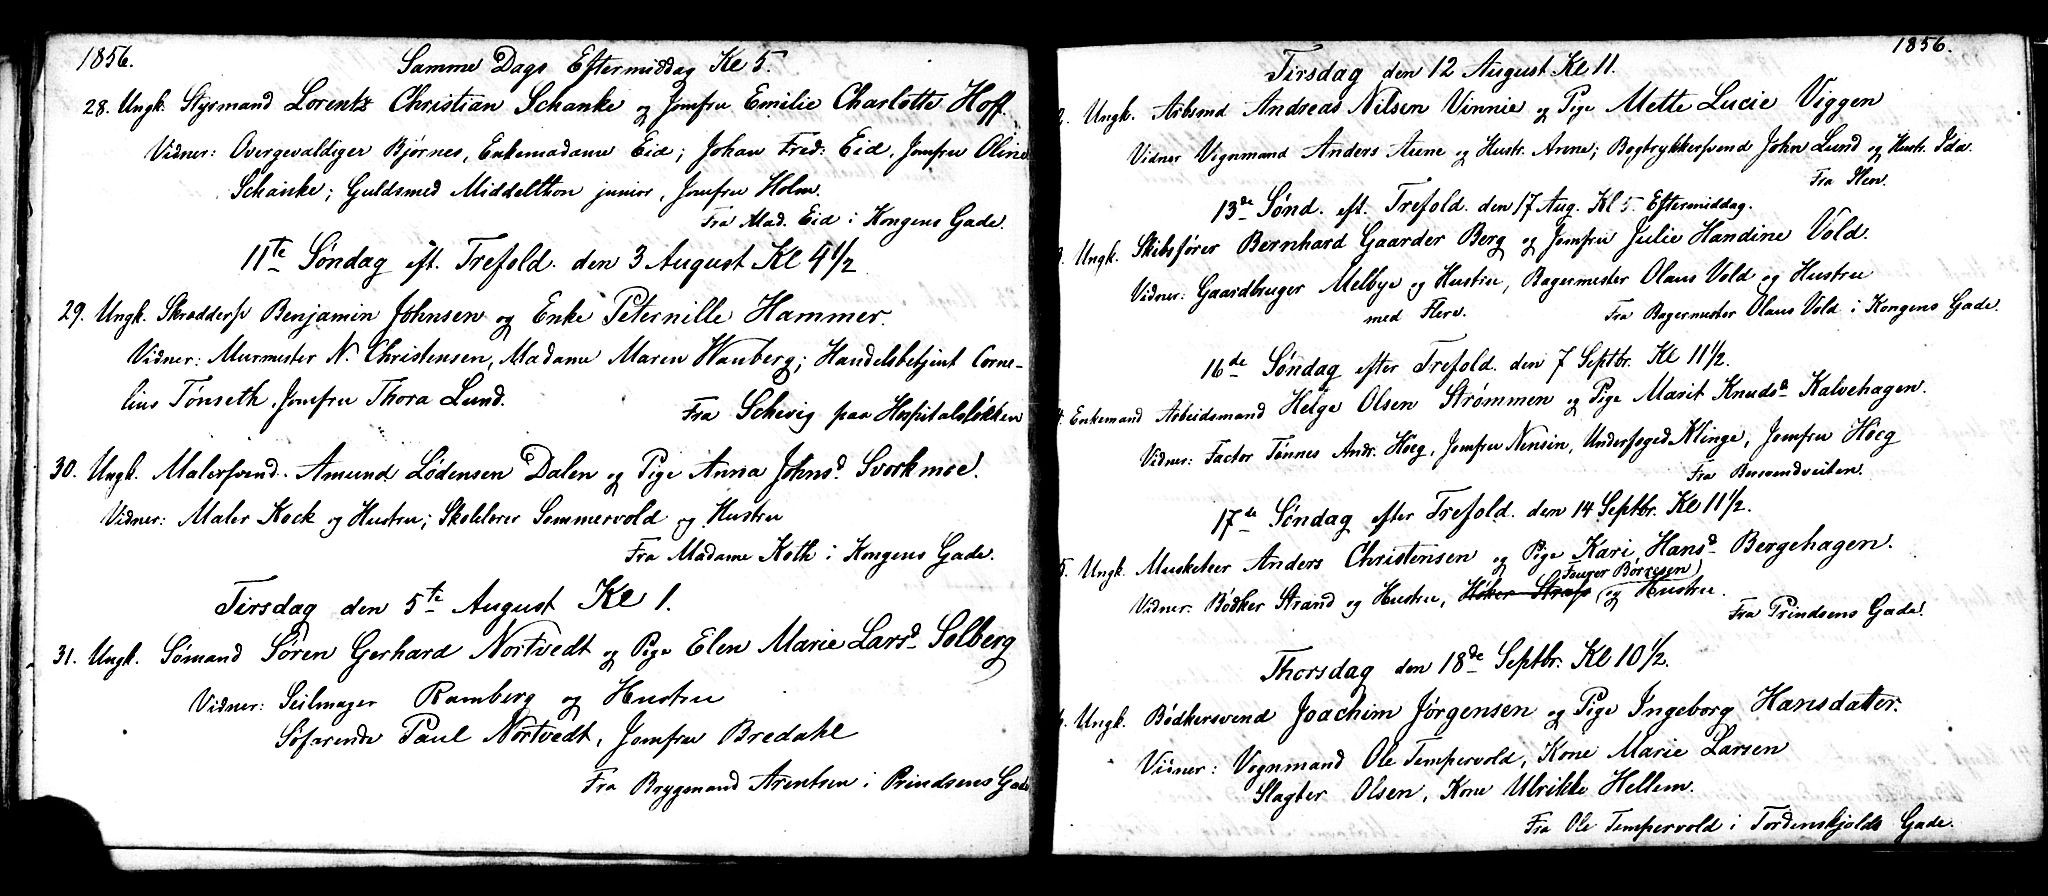 1856.
Samme Dags Eftermiddag Kl 5.
28. Ungk. Styrmand Lorentz Christian Schanke og Jomfru Emilie Charlotte Hoff.
Vidner: Overgevaldiger Bjørnes, Enkemadame Eid; Johan Fred: Eid, Jomfru Oline
Schanke; Guldsmed Middelthon junior, Jomfru Holm.
Fra Mad. Eid i Kongens Gade.
11te Søndag eft. Trefold. den 3 August Kl 4 1/2
29. Ungk. Skrædders. Benjamin Johnsen og Enke Peternille Hammer.
Vidner: Murmester N. Christensen, Madame Maren Wanberg; Handelsbetjent Corne-
lius Tønseth, Jomfru Thora Lund.
Fra Schevig paa Hospitalsløkken
30. Ungk. Malersvend. Amund Lødensen Dalen og Pige Anna Johnsd. Svorkmoe.
Vidner: Maler Kock og Hustru; Skolelærer Sommervold og Hustru
Fra Madame Koth i Kongens Gade.
Tirsdag den 5te August Kl 1.
31. Ungk. Sømand Søren Gerhard Nortvedt og Pige Elen Marie Larsd. Solberg
Vidner: Seilmager Ramberg og Hustru
Søfarende Paul Nortvedt, Jomfru Bredahl
Fra Brygmand Arentsen i Prindsens Gade
1856.
Tirsdag den 12 August Kl 11.
2. Ungk. Arbsmd Andreas Nilsen Vinnie og Pige Mette Lucie Viggen
Vidner Vognmand Anders Aune og Hustr. Anne; Bogtrykkersvend John Lund og Hustr. Ida.
Fra Ilen.
13de Sønd. eft. Trefold. den 17 Aug. Kl 5. Eftermiddag.
3. Ungk. Skibsfører Bernhard Gaarder Berg og Jomfru Julie Handine Vold.
Vidner: Gaardbruger Melbye og Hustru, Bagermester Olaus Vold og Hustru
med Flere.
Fra Bagermester Olaus Vold i Kongens Gade.
16de Søndag efter Trefold. den 7 Septbr. Kl 11 1/2.
4. Enkemand Arbeidsmand Helge Olsen Strømmen og Pige Marit Knudsd. Kalvehagen.
Vidner: Factor Tønnes Andr. Høeg, Jomfru Nensin, Underfoged Klinge, Jomfru Høeg
Fra
17de Søndag efter Trefold. den 14 Septbr. Kl 11 1/2.
5. Ungk. Musketeer Anders Christensen og Pige Kari Hansd. Bergehagen.
Fourer Børresen
Vidner: Bødker Strand og Hustru, Høker og Hustru.
Fra Prindsens Gade.
Thorsdag den 18de Septbr. Kl 10 1/2.
6. Ungk. Bødkersvend Joachim Jørgensen og Pige Ingeborg Hansdatter.
Vidner: Vognmand Ole Tempervold, Kone Marie Larsen
Slagter Olsen, Kone Ulrikke Hellem.
Fra Ole Tempervold i Tordenskjolds Gade.